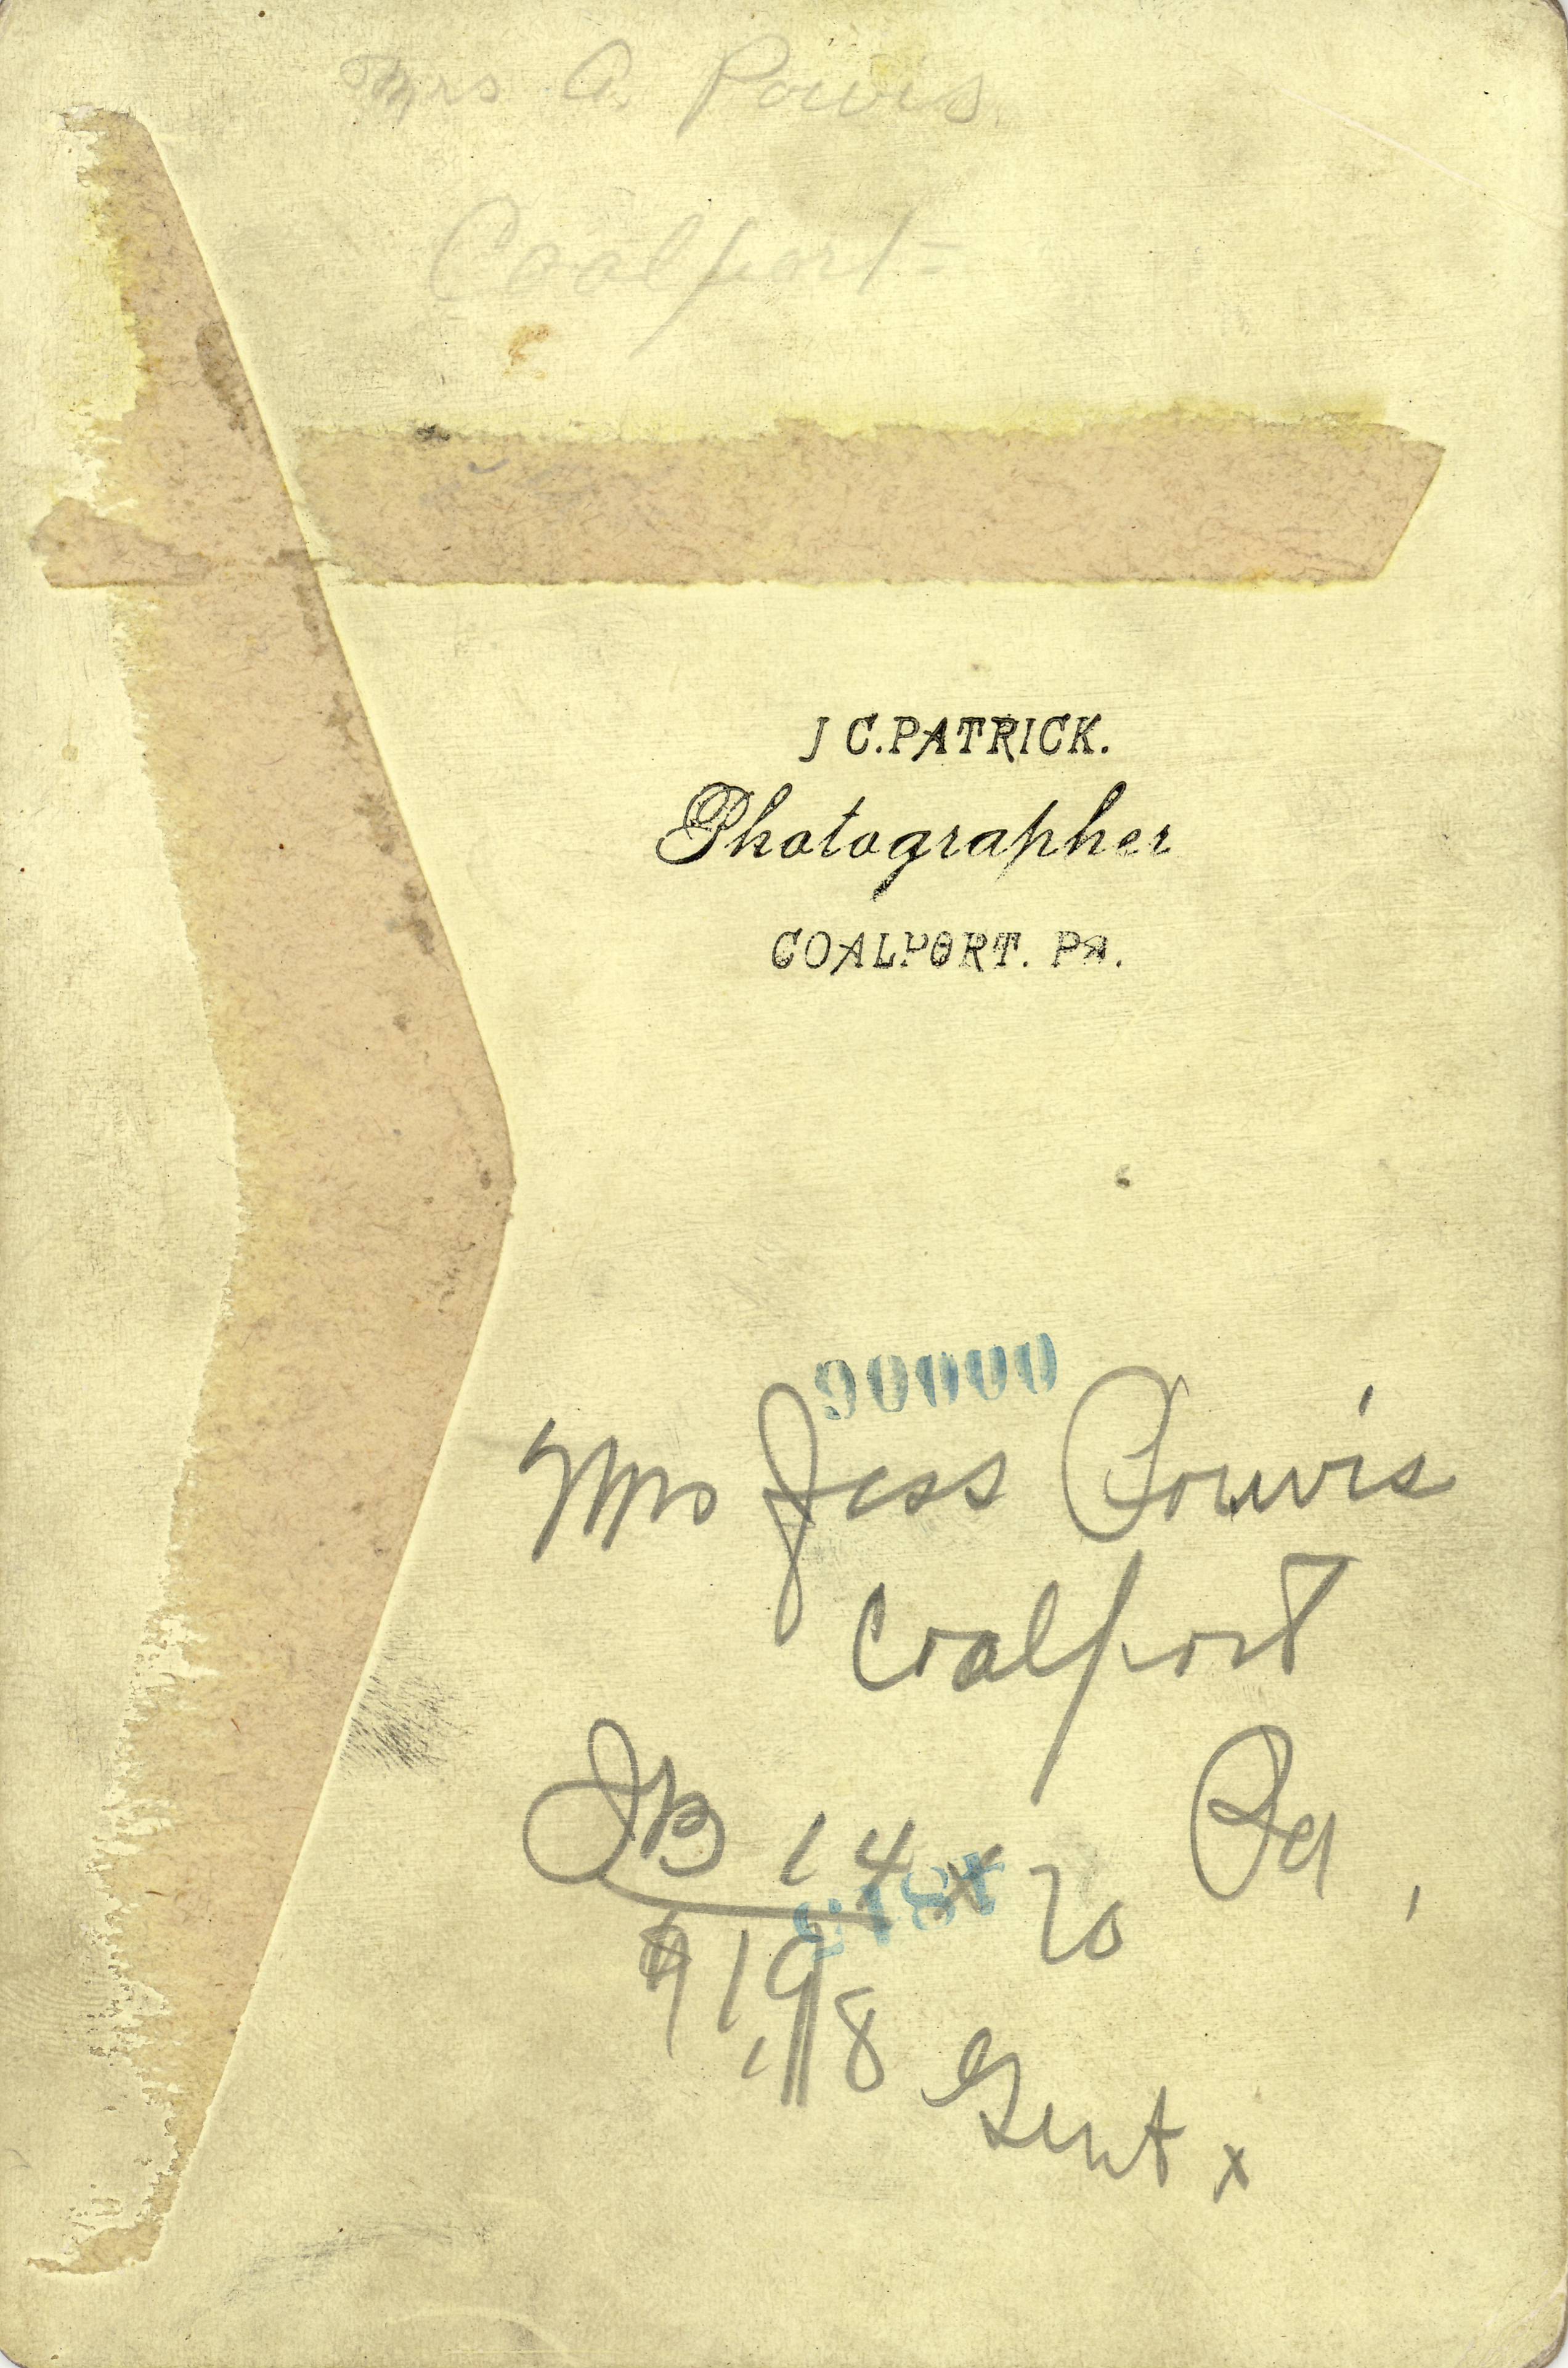 Mrs A. Powis
Coalport
J C. PATRICK.
Photographer
COALPORT. PA.
90000
Mrs Jess Powis
Coalport
Pa,
JB 14 x 20
8 Gent x